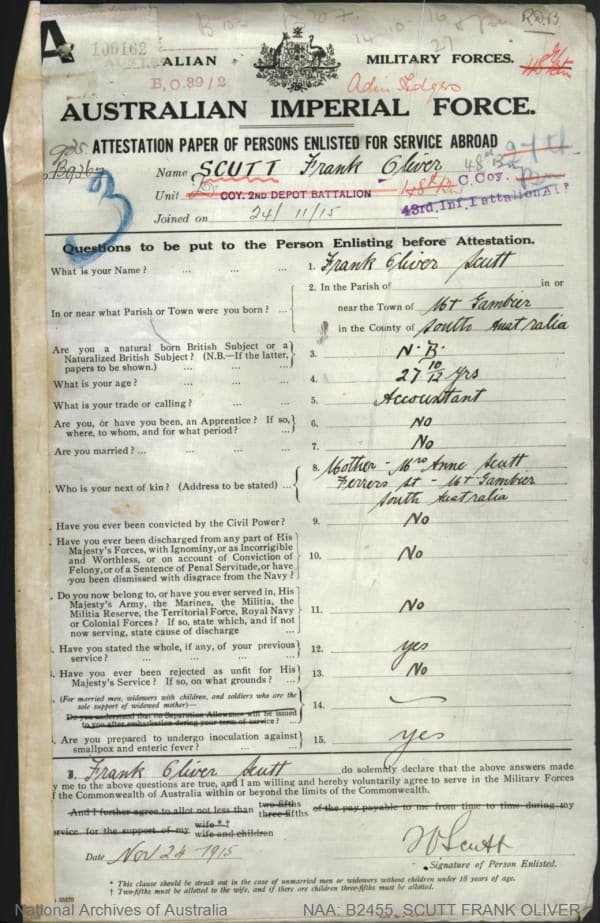 A
100162
ALIAN MILITARY FORCES.
B,O.39/2
AUSTRALIAN IMPERIAL FORCE.
ATTESTATION PAPER OF PERSONS ENLISTED FOR SERVICE ABROAD
Name SCUTT Frank Oliver
Unit COY. 2ND DEPOT BATTALION C Coy.
43rd. Inf. Battalion A.I.F
Joined on 24/11/15
Questions to be put to the Person Enlisting before Attestation.
What is your Name? ... ... ... 1. Frank Oliver Scutt
In or near what Parish or Town were you born? ... 2. In the Parish of in or
near the Town of Mt Gambier
in the County of South Australia
Are you a natural born British Subject or a
Naturalized British Subject? (N.B.—If the latter,
papers to be shown.) ... ... 3. N. B.
What is your age? ... ... ... 4. 27 10/12 yrs
What is your trade or calling? ... ... 5. Accountant
Are you, or have you been, an Apprentice? If so,
where, to whom, and for what period? ... 6. No
Are you married? ... ... ... ... 7. No
Who is your next of kin? (Address to be stated) ... 8. Mother - Mrs Anne Scutt
Ferrers St - Mt Gambier
South Australia
Have you ever been convicted by the Civil Power? 9. No
Have you ever been discharged from any part of His
Majesty's Forces, with Ignominy, or as Incorrigible
and Worthless, or on account of Conviction of
Felony, or of a Sentence of Penal Servitude, or have
you been dismissed with disgrace from the Navy? 10. No
Do you now belong to, or have you ever served in, His
Majesty's Army, the Marines, the Militia, the
Militia Reserve, the Territorial Force, Royal Navy
or Colonial Forces? If so, state which, and if not
now serving, state cause of discharge ... 11. No
Have you stated the whole, if any, of your previous
service? ... ... ... ... 12. yes
Have you ever been rejected as unfit for His
Majesty's Service? If so, on what grounds? ... 13. No
(For married men, widowers with children, and soldiers who are the
sole support of widowed mother)—
Do you understand that no Separation Allowance will be issued
to you after embarkation during your term of service? ... 14.
Are you prepared to undergo inoculation against
smallpox and enteric fever? ... ... 15. yes
I, Frank Oliver Scutt do solemnly declare that the above answers made
by me to the above questions are true, and I am willing and hereby voluntarily agree to serve in the Military Forces
of the Commonwealth of Australia within or beyond the limits of the Commonwealth.
And I further agree to allot not less than two-fifths three-fifths of the pay payable to me from time to time during my
service for the support of my wife *† wife and children
Date Nov 24 1915
Signature of Person Enlisted.
* This clause should be struck out in the case of unmarried men or widowers without children under 18 years of age.
† Two-fifths must be allotted to the wife, and if there are children three-fifths must be allotted.
National Archives of Australia NAA: B2455, SCUTT FRANK OLIVER